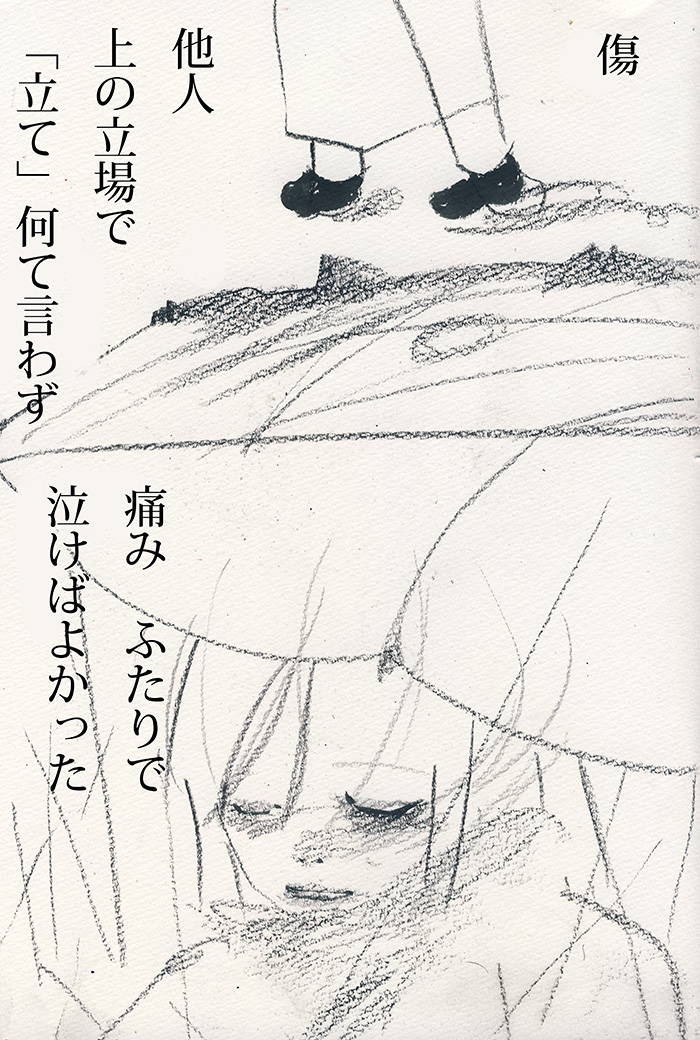 傷
他人
上の立場で
「立て」何て言わず
痛み　ふたりで
泣けばよかった